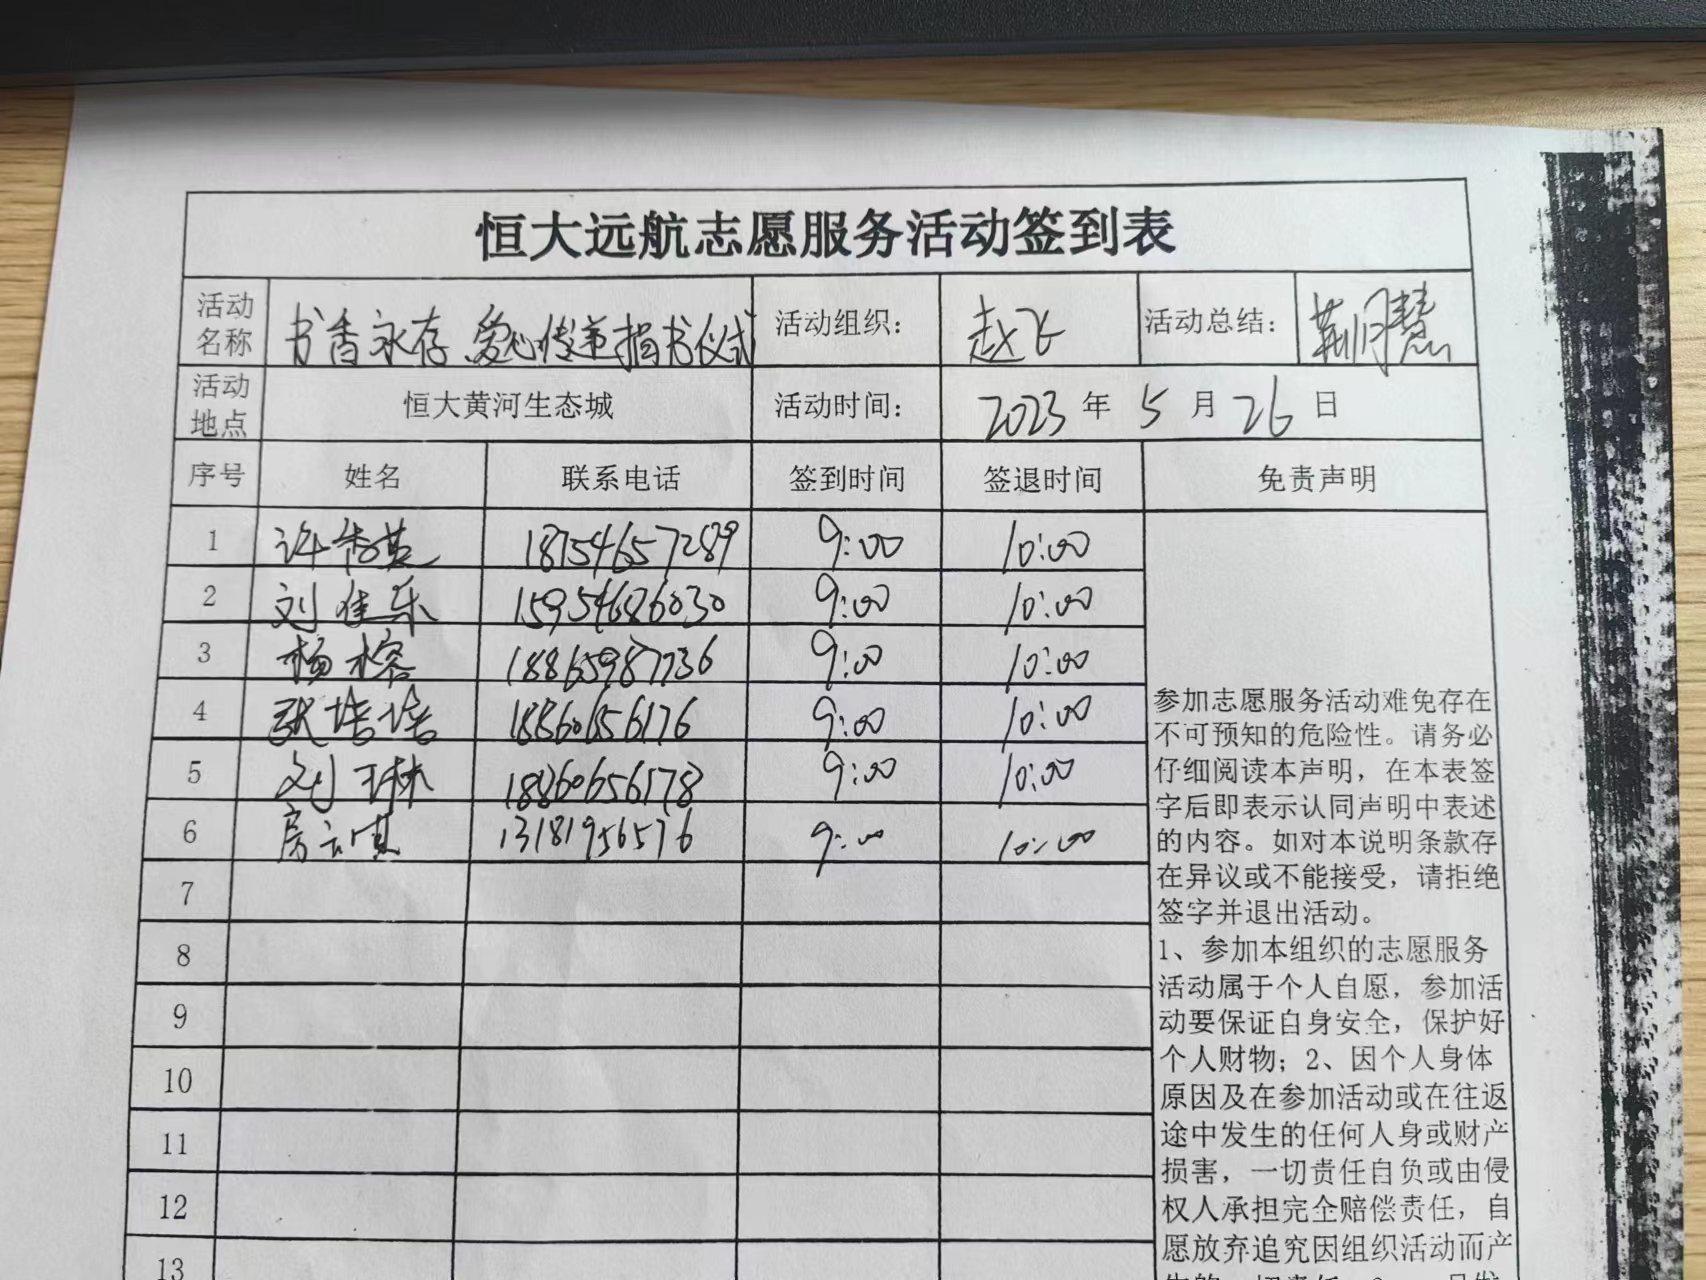 恒大远航志愿服务活动签到表
活动名称 书香永存 爱心传递捐书仪式 活动组织： 赵飞 活动总结： 荆月慧
活动地点 恒大黄河生态城 活动时间： 2023 年 5 月 26 日
序号 姓名 联系电话 签到时间 签退时间 免责声明
1 许秀英 18754657289 9:00 10:00
2 刘佳乐 15954686030 9:00 10:00
3 杨榕 18865987736 9:00 10:00
4 张培培 18860656176 9:00 10:00
5 刘琳 18860656178 9:00 10:00
6 房 13181956576 9:00 10:00
7
8
9
10
11
12
13
参加志愿服务活动难免存在
不可预知的危险性。请务必
仔细阅读本声明，在本表签
字后即表示认同声明中表述
的内容。如对本说明条款存
在异议或不能接受，请拒绝
签字并退出活动。
1、参加本组织的志愿服务
活动属于个人自愿，参加活
动要保证自身安全，保护好
个人财物；2、因个人身体
原因及在参加活动或在往返
途中发生的任何人身或财产
损害，一切责任自负或由侵
权人承担完全赔偿责任，自
愿放弃追究因组织活动而产